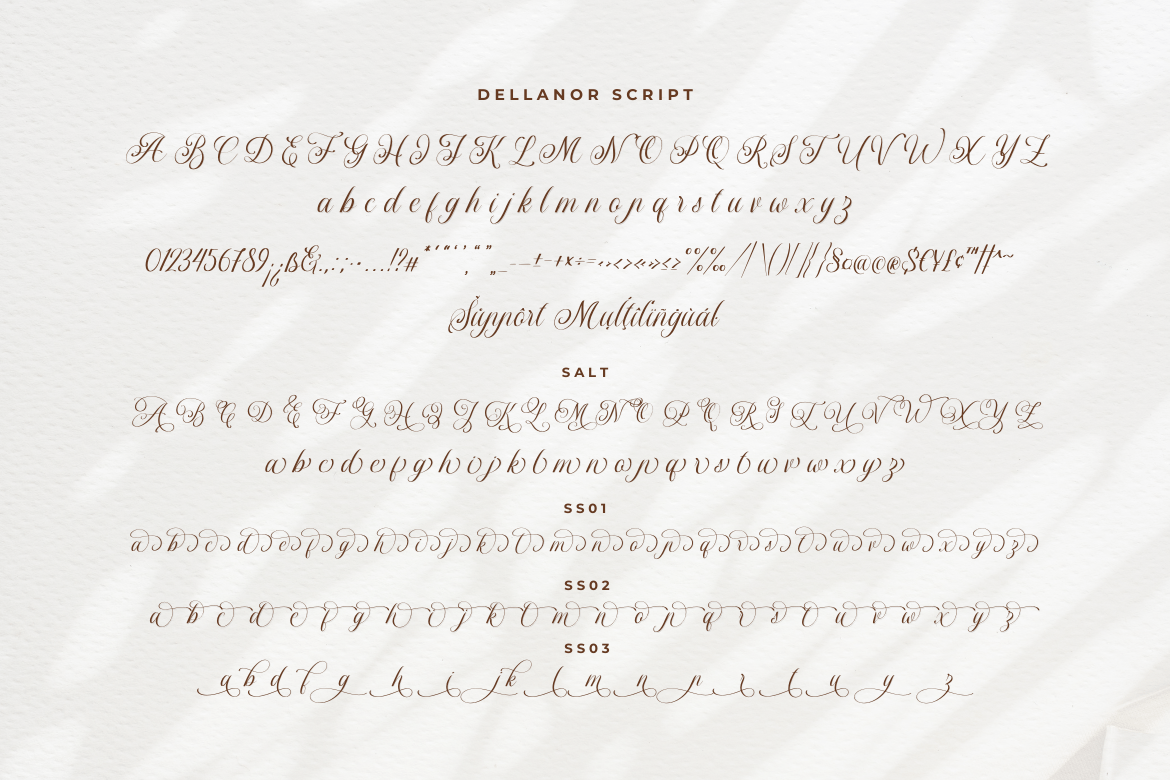 DELLANOR SCRIPT
A B C D E F G H I J K L M N O P Q R S T U V W X Y Z
a b c d e f g h i j k l m n o p q r s t u v w x y z
0123456789
Süppôrt Mulţilïñgùál
SALT
A B C D E F G H I J K L M N O P Q R S T U V W X Y Z
a b c d e f g h i j k l m n o p q r s t u v w x y z
SS01
a b c d e f g h i j k l m n o p q r s t u v w x y z
SS02
a b c d e f g h i j k l m n o p q r s t u v w x y z
SS03
a b d f g h i j k l m n p r t u y z